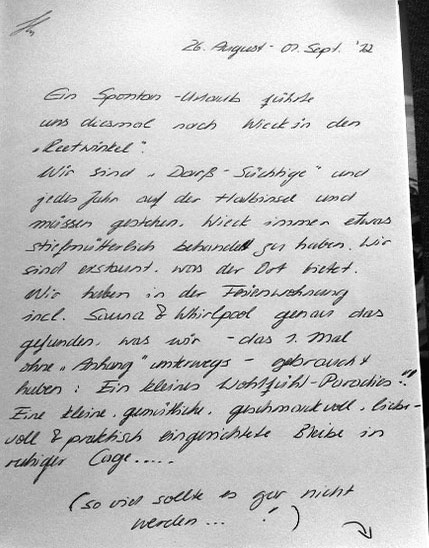 26. August - 01. Sept. '12
Ein Spontan-Urlaub führte
uns diesmal nach Wieck in den
„Reetwinkel".
Wir sind „Darß-Süchtige" und
jedes Jahr auf der Halbinsel und
müssen gestehen, Wieck immer etwas
stiefmütterlich behandelt zu haben. Wir
sind erstaunt, was der Ort bietet.
Wir haben in der Ferienwohnung
incl. Sauna & Whirlpool genau das
gefunden, was wir - das 1. Mal
ohne „Anhang" unterwegs - gebraucht
haben: Ein kleines Wohlfühl-Paradies!"
Eine kleine, gemütliche, geschmackvoll, liebe-
voll & praktisch eingerichtete Bleibe in
ruhiger Lage.....
(so viel sollte es gar nicht
werden... !)